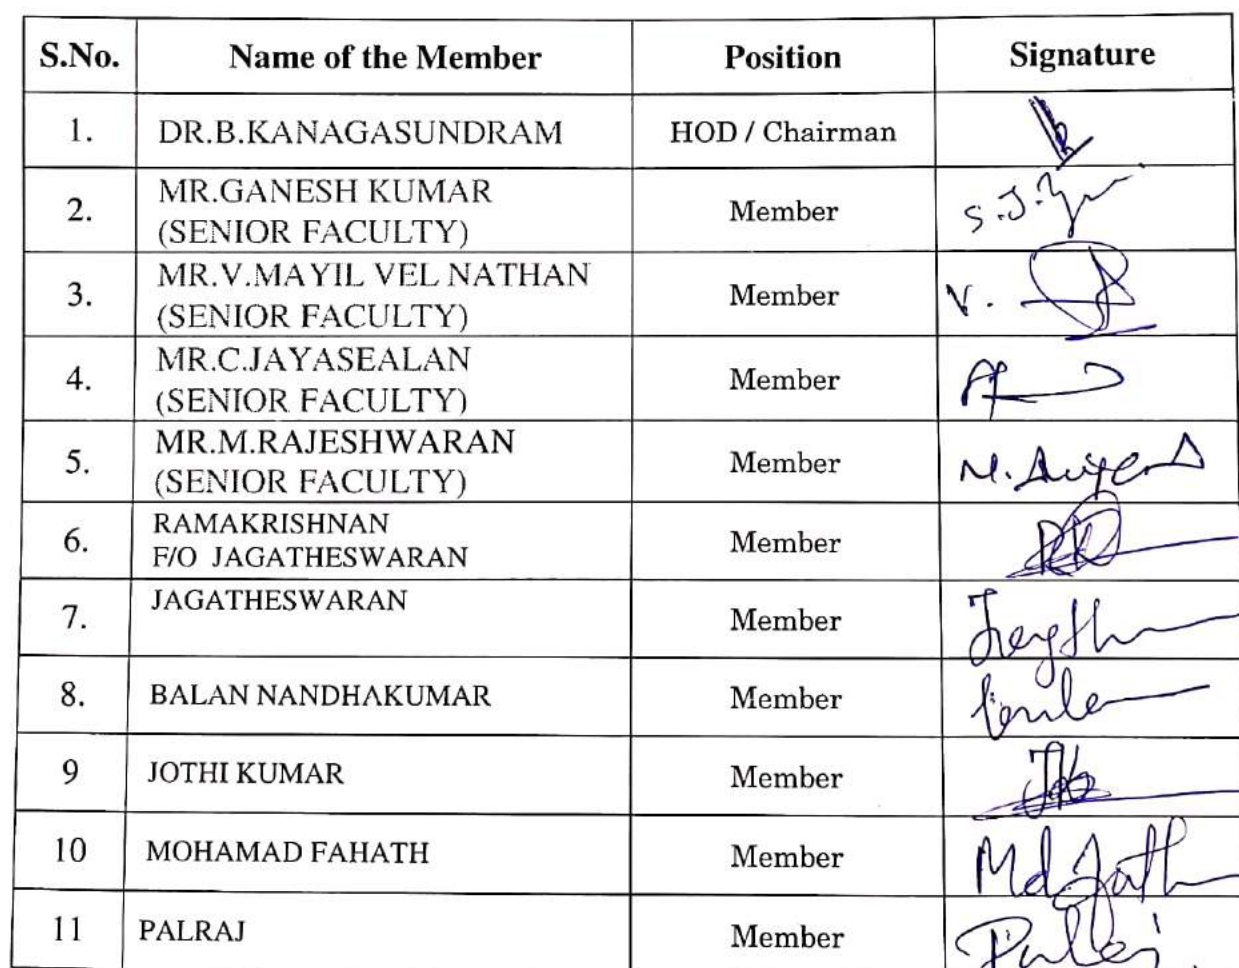 S.No. Name of the Member Position Signature
1. DR.B.KANAGASUNDRAM HOD / Chairman
2. MR.GANESH KUMAR
(SENIOR FACULTY) Member
3. MR.V.MAYIL VEL NATHAN
(SENIOR FACULTY) Member V.
4. MR.C.JAYASEALAN
(SENIOR FACULTY) Member
5. MR.M.RAJESHWARAN
(SENIOR FACULTY) Member
6. RAMAKRISHNAN
F/O JAGATHESWARAN Member
7. JAGATHESWARAN
Member
8. BALAN NANDHAKUMAR Member
9 JOTHI KUMAR Member
10 MOHAMAD FAHATH Member
11 PALRAJ Member